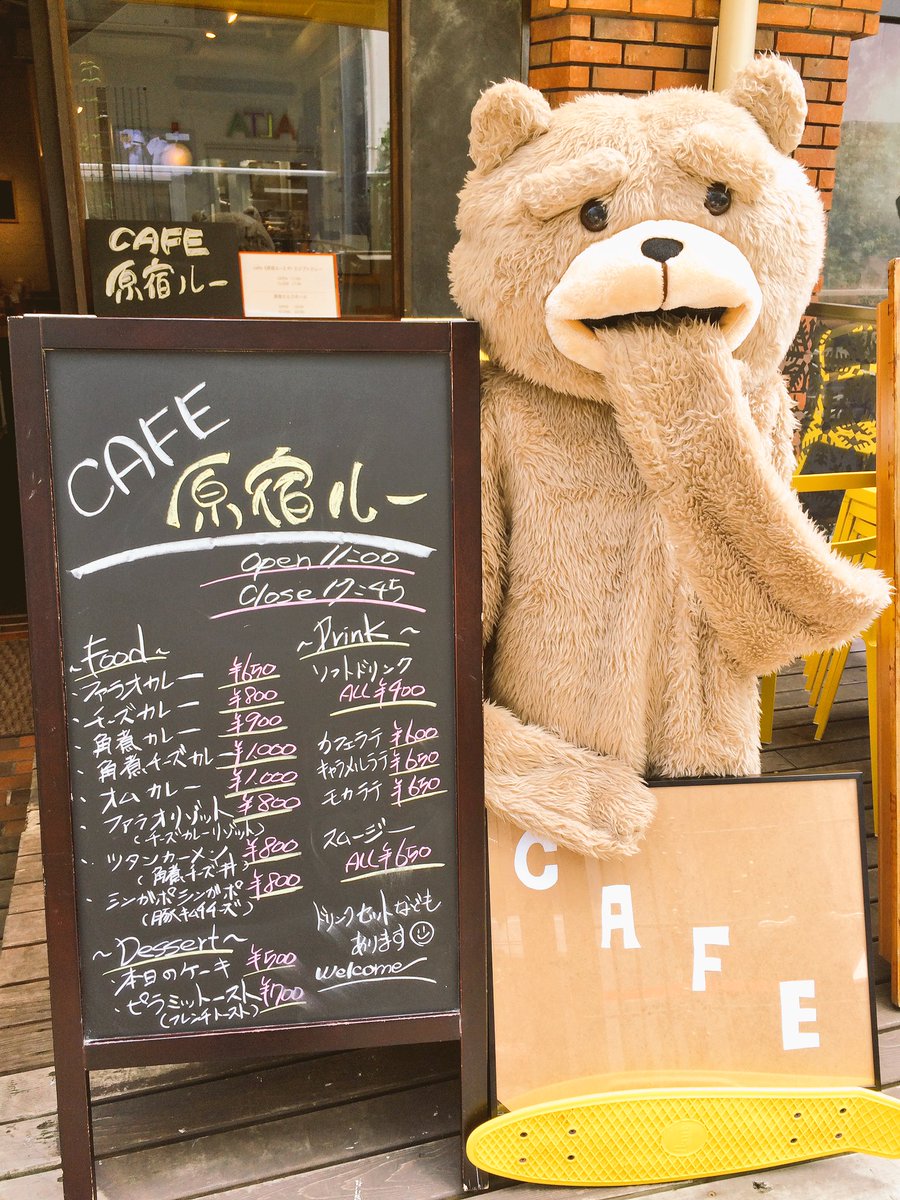 ATIA
CAFE
原宿ルー
CAFE
原宿ルー
Open 11:00
Close 17:45
~Food~
・ファラオカレー ¥650
・チーズカレー ¥800
・角煮カレー ¥900
・角煮チーズカレー ¥1,000
・オムカレー ¥1,000
・ファラオリゾット ¥800
(チーズカレーリゾット)
・ツタンカーメン ¥800
(角煮チーズ丼)
・シンガポシンガポ ¥800
(豚キムチチーズ)
~Dessert~
・本日のケーキ ¥500
・ピラミットースト ¥700
(フレンチトースト)
~Drink~
ソフトドリンク
ALL ¥400
カフェラテ ¥600
キャラメルラテ ¥650
モカラテ ¥650
スムージー
ALL ¥650
ドリンクセットなども
あります
welcome
CAFE